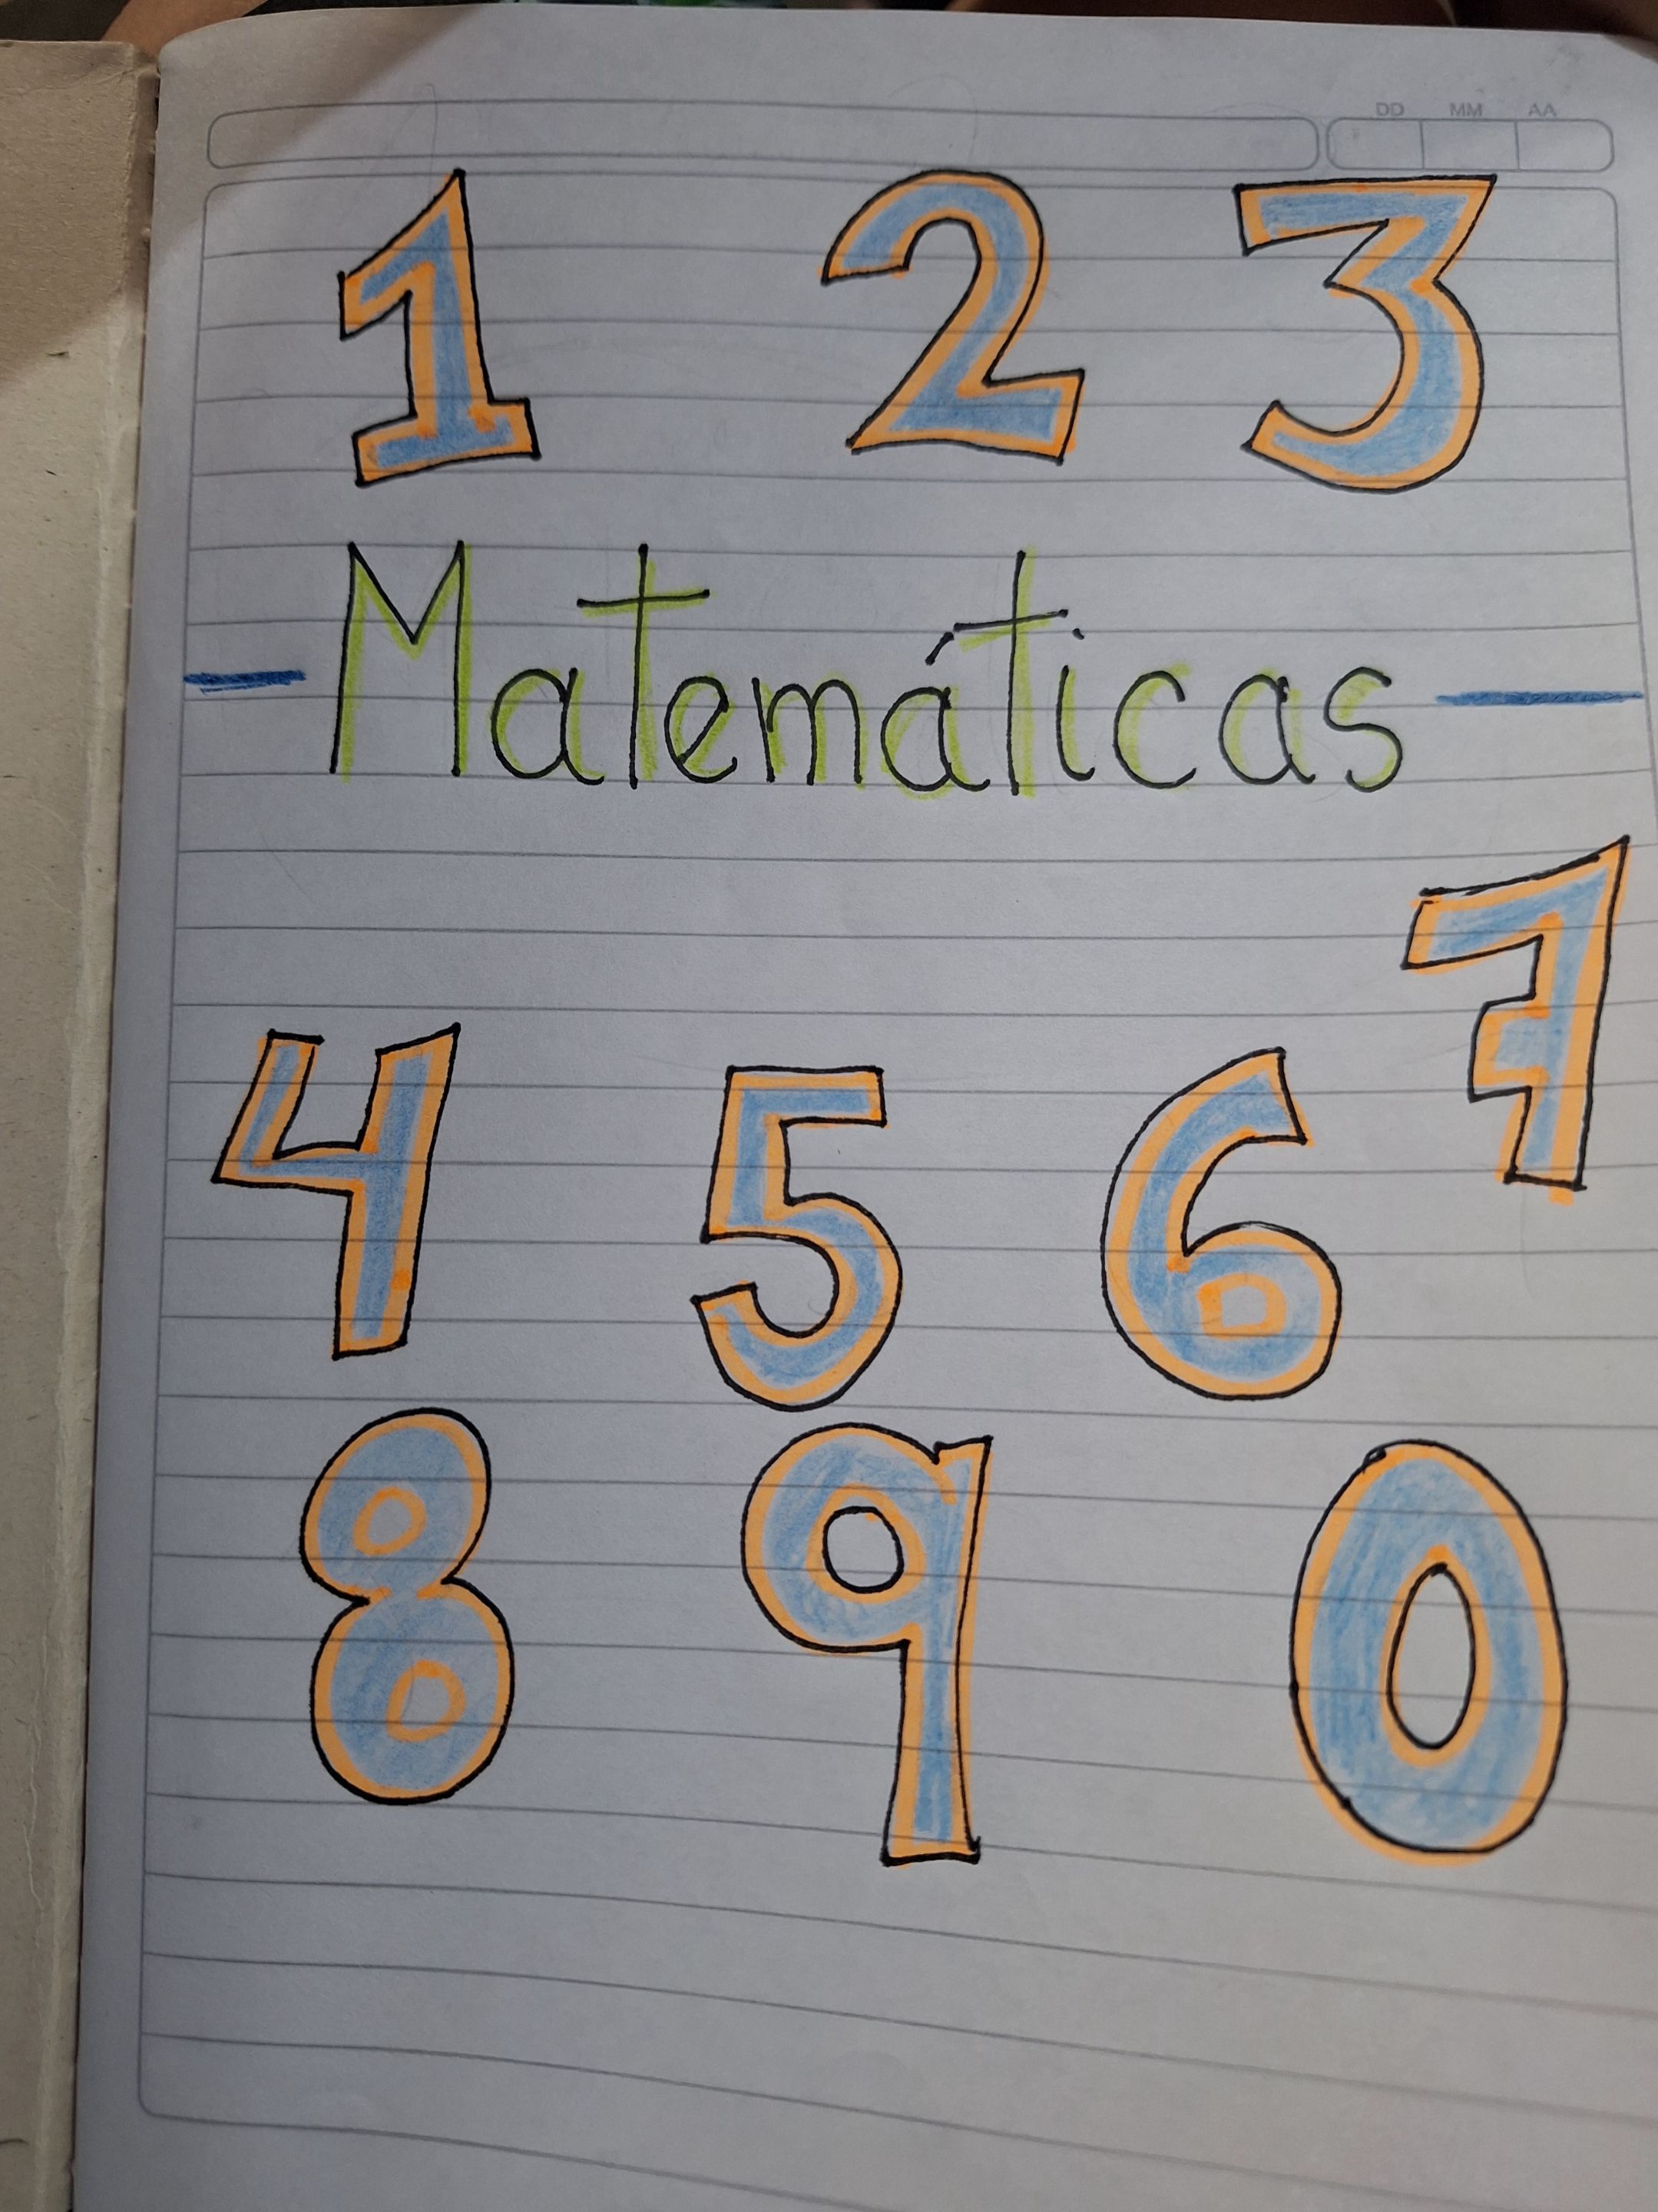 DD MM AA
1 2 3
Matemáticas
4 5 6 7
8 9 0